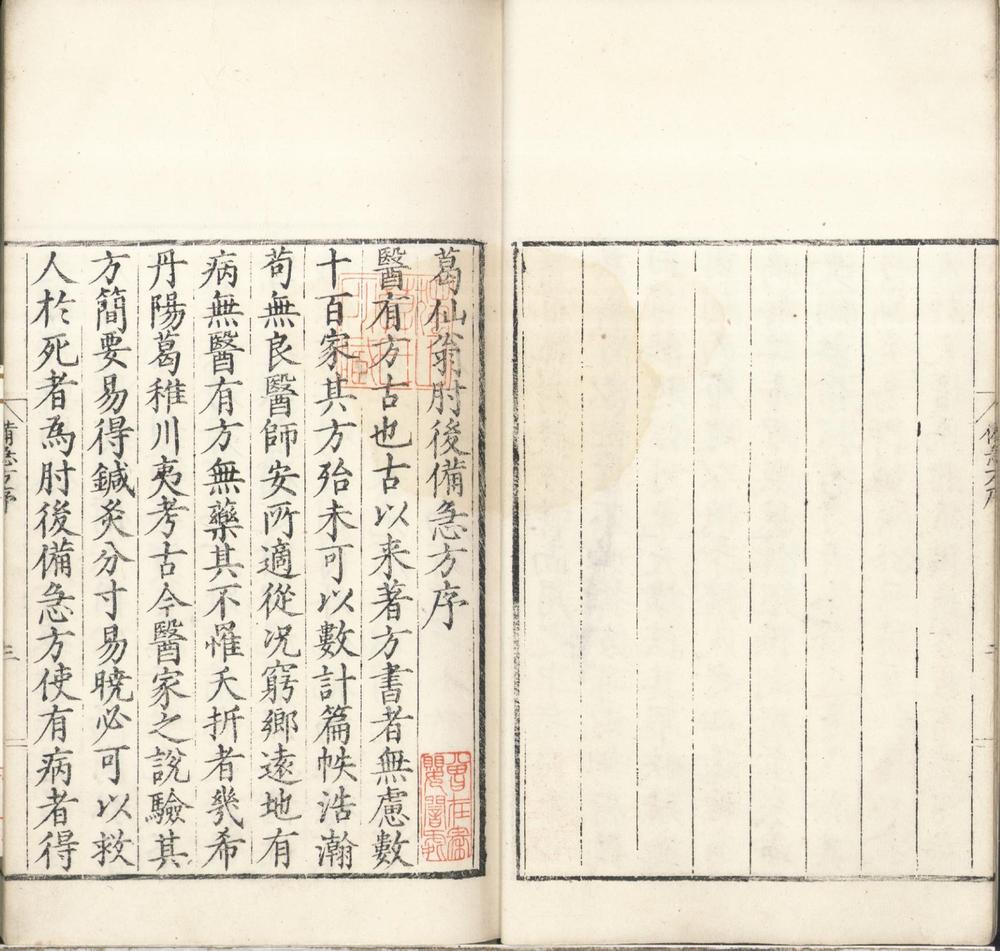 葛仙翁肘後備急方序
醫有方古也古以来著方書者無慮數
十百家其方殆未可以數計篇帙浩瀚
苟無良醫師安所適從况窮鄉遠地有
病無醫有方無藥其不罹夭折者幾希
丹陽葛稚川夷考古今醫家之說驗其
方簡要易得鍼灸分寸易曉必可以救
人於死者為肘後備急方使有病者得
備急方序